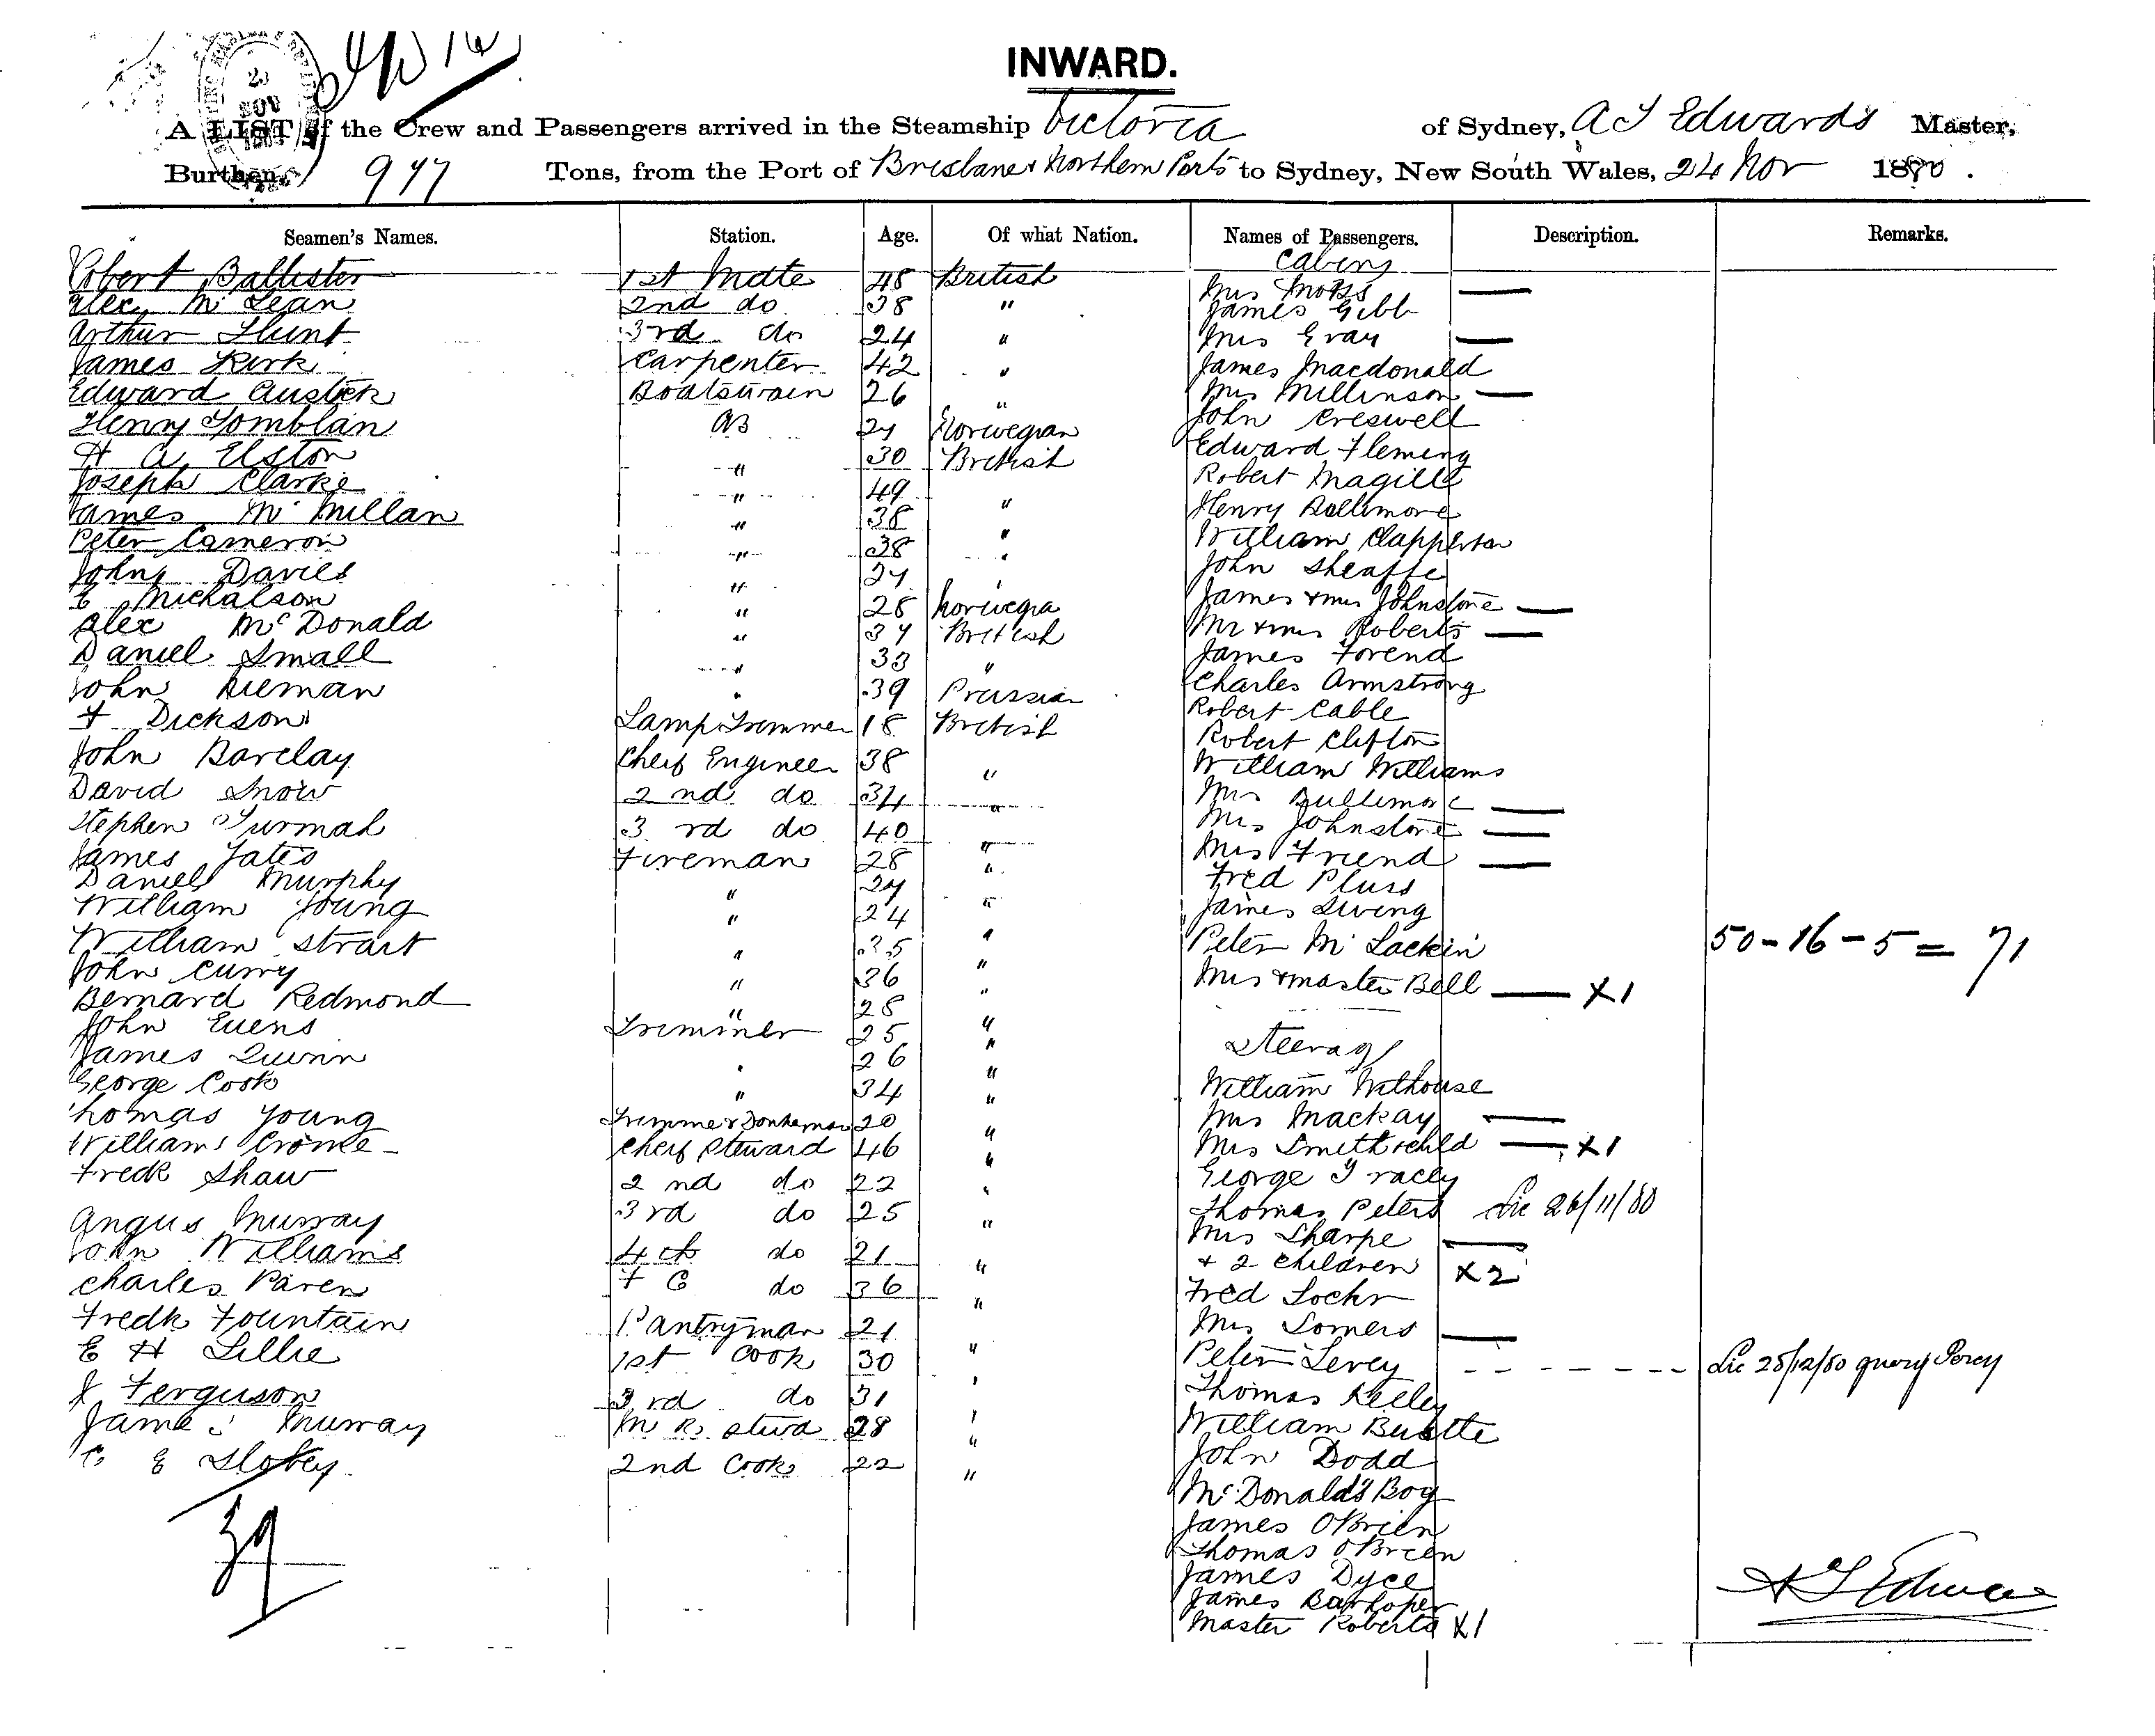 INWARD.
A LIST of the Crew and Passengers arrived in the Steamship Victoria of Sydney, A T Edwards Master,
Burthen, 977 Tons, from the Port of Brisbane & Northern Ports to Sydney, New South Wales, 24 Nov 1880.
Seamen's Names. Station. Age. Of what Nation. Names of Passengers. Description. Remarks.
Cabin
Robert Ballister 1st Mate 48 British Mrs Motts —
Alex McLean 2nd do 38 " James Gibb
Arthur Hunt 3rd do 24 " Mrs Gray —
James Kirk Carpenter 42 " James Macdonald
Edward Austick Boatswain 26 " Mrs Millinson —
Henry Tomblan AB 27 Norwegian John Creswell
H A Elston " 30 British Edward Fleming
Joseph Clarke " 49 " Robert Magill
James McMillan " 38 " Henry Bullimore
Peter Cameron " 38 " William Clapperton
John Davies " 27 " John Sheaffe
E Nichalson " 28 Norwegia James & Mrs Johnstone —
Alex McDonald " 37 British Mr & Mrs Roberts —
Daniel Small " 33 " James Forend
John Rieman " 39 Prussian Charles Armstrong
F Dickson Lamp Trimmer 18 British Robert Cable
Robert Clifton
John Barclay Cheif Engineer 38 " William Williams
David Snow 2nd do 34 " Mrs Bullimore —
Stephen Turmah 3rd do 40 " Mrs Johnstone —
James Yates Fireman 28 " Mrs Friend —
Daniel Murphy " 27 " Fred Pluss
William Young " 24 " James Ewing
William Strait " 35 " Peter McLackin 50-16-5 = 71
John Curry " 36 " Mrs & Master Bell — X1
Bernard Redmond " 28 "
John Evens Trimmer 25 " Steerage
James Quinn " 26 "
George Cook " 34 " William Wethouse
Thomas Young Trimmer & Donkeman 20 " Mrs Mackay —
William Crome Cheif Steward 46 " Mrs Smith & child — X1
Fredk Shaw 2nd do 22 " George Tracey
Angus Murray 3rd do 25 " Thomas Peters Lic 26/11/80
Mrs Sharpe —
John Williams 4th do 21 " + 2 Children X2
Charles Paren F C do 36 " Fred Lochr
Fredk Fountain Pantryman 21 " Mrs Somers —
E H Lillie 1st Cook 30 " Peter Levey - - - - - - Lic 28/12/80 query Percy
J Ferguson 3rd do 31 " Thomas Kelley
James Murray M R Stwd 28 " William Bustte
C E Slobey 2nd Cook 22 " John Dodd
McDonald's Boy
39 James OBrien
Thomas OBrien
James Dyce
James Barloper
Master Roberts X1
A T Edwards